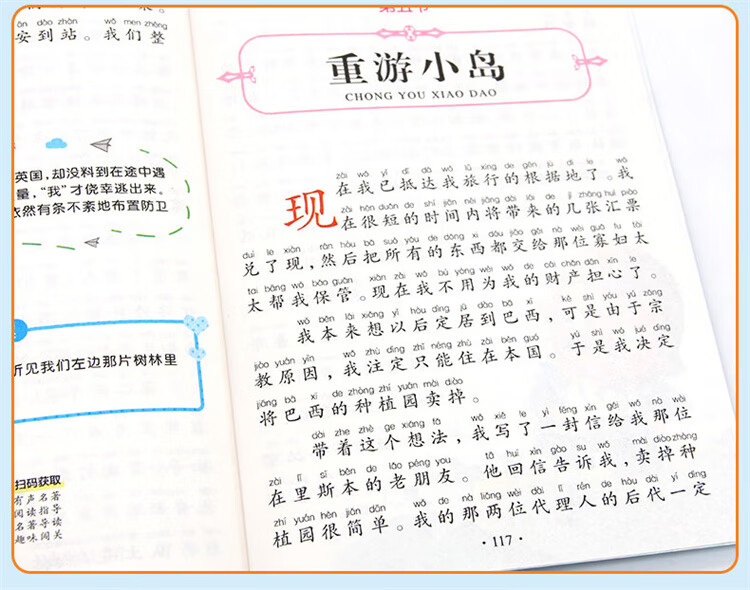 来。
ān dào zhàn wǒ men zhěng
安到站。我们整
英国,却没料到在途中遇
量,“我”才侥幸逃出来。
依然有条不紊地布置防卫
听见我们左边那片树林里
扫码获取
有声名著
阅读指导
名著导读
趣味闯关
第五节
重游小岛
CHONG YOU XIAO DAO
zài wǒ yǐ dǐ dá wǒ lǚ xíng de gēn jù dì le wǒ
现在我已抵达我旅行的根据地了。我
zài hěn duǎn de shí jiān nèi jiāng dài lái de jǐ zhāng huì piào
在很短的时间内将带来的几张汇票
duì le xiàn rán hòu bǎ suǒ yǒu de dōng xi dōu jiāo gěi nà wèi guǎ fu tài
兑了现,然后把所有的东西都交给那位寡妇太
tai bāng wǒ bǎo guǎn xiàn zài wǒ bú yòng wèi wǒ de cái chǎn dān xīn le
太帮我保管。现在我不用为我的财产担心了。
wǒ běn lái xiǎng yǐ hòu dìng jū dào bā xī kě shì yóu yú zōng
我本来想以后定居到巴西,可是由于宗
jiào yuán yīn wǒ zhù dìng zhǐ néng zhù zài běn guó yú shì wǒ jué dìng
教原因,我注定只能住在本国。于是我决定
jiāng bā xī de zhòng zhí yuán mài diào
将巴西的种植园卖掉。
dài zhe zhè ge xiǎng fǎ wǒ xiě le yì fēng xìn gěi wǒ nà wèi
带着这个想法,我写了一封信给我那位
zài lǐ sī běn de lǎo péng you tā huí xìn gào su wǒ mài diào zhòng
在里斯本的老朋友。他回信告诉我,卖掉种
zhí yuán hěn jiǎn dān wǒ de nà liǎng wèi dài lǐ rén de hòu dài yí dìng
植园很简单。我的那两位代理人的后代一定
·117·